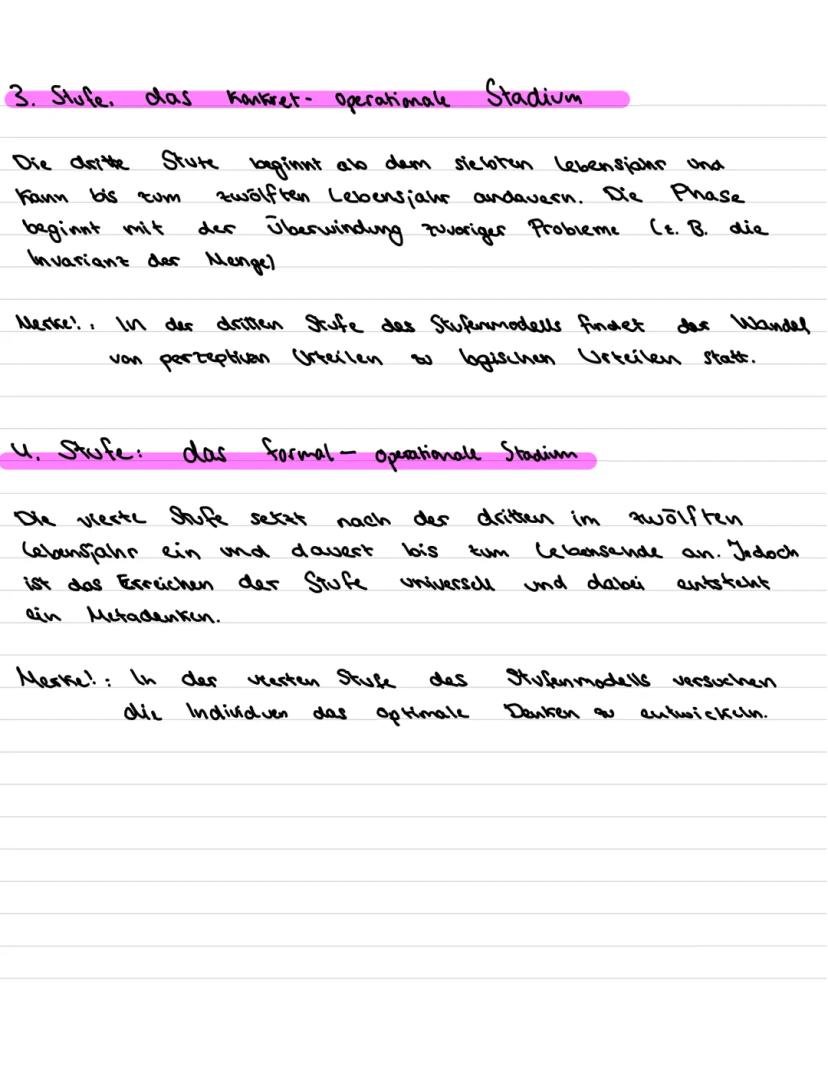 3. Stufe. das konkret- operationale Stadium
Die dritte Stufe beginnt ab dem siebten Lebensjahr und
kann bis zum zwölften Lebensjahr andauern. Die Phase
beginnt mit der Überwindung zuvoriger Probleme (z. B. die
Invarianz der Menge)
Merke!: In der dritten Stufe des Stufenmodells findet der Wandel
von perzeptiven Urteilen zu logischen Urteilen statt.
4. Stufe: das formal- operationale Stadium
Die vierte Stufe setzt nach der dritten im zwölften
Lebensjahr ein und dauert bis zum Lebensende an. Jedoch
ist das Erreichen der Stufe universell und dabei entsteht
ein Metadenken.
Merke!: In der vierten Stufe des Stufenmodells versuchen
die Individuen das optimale Denken zu entwickeln.